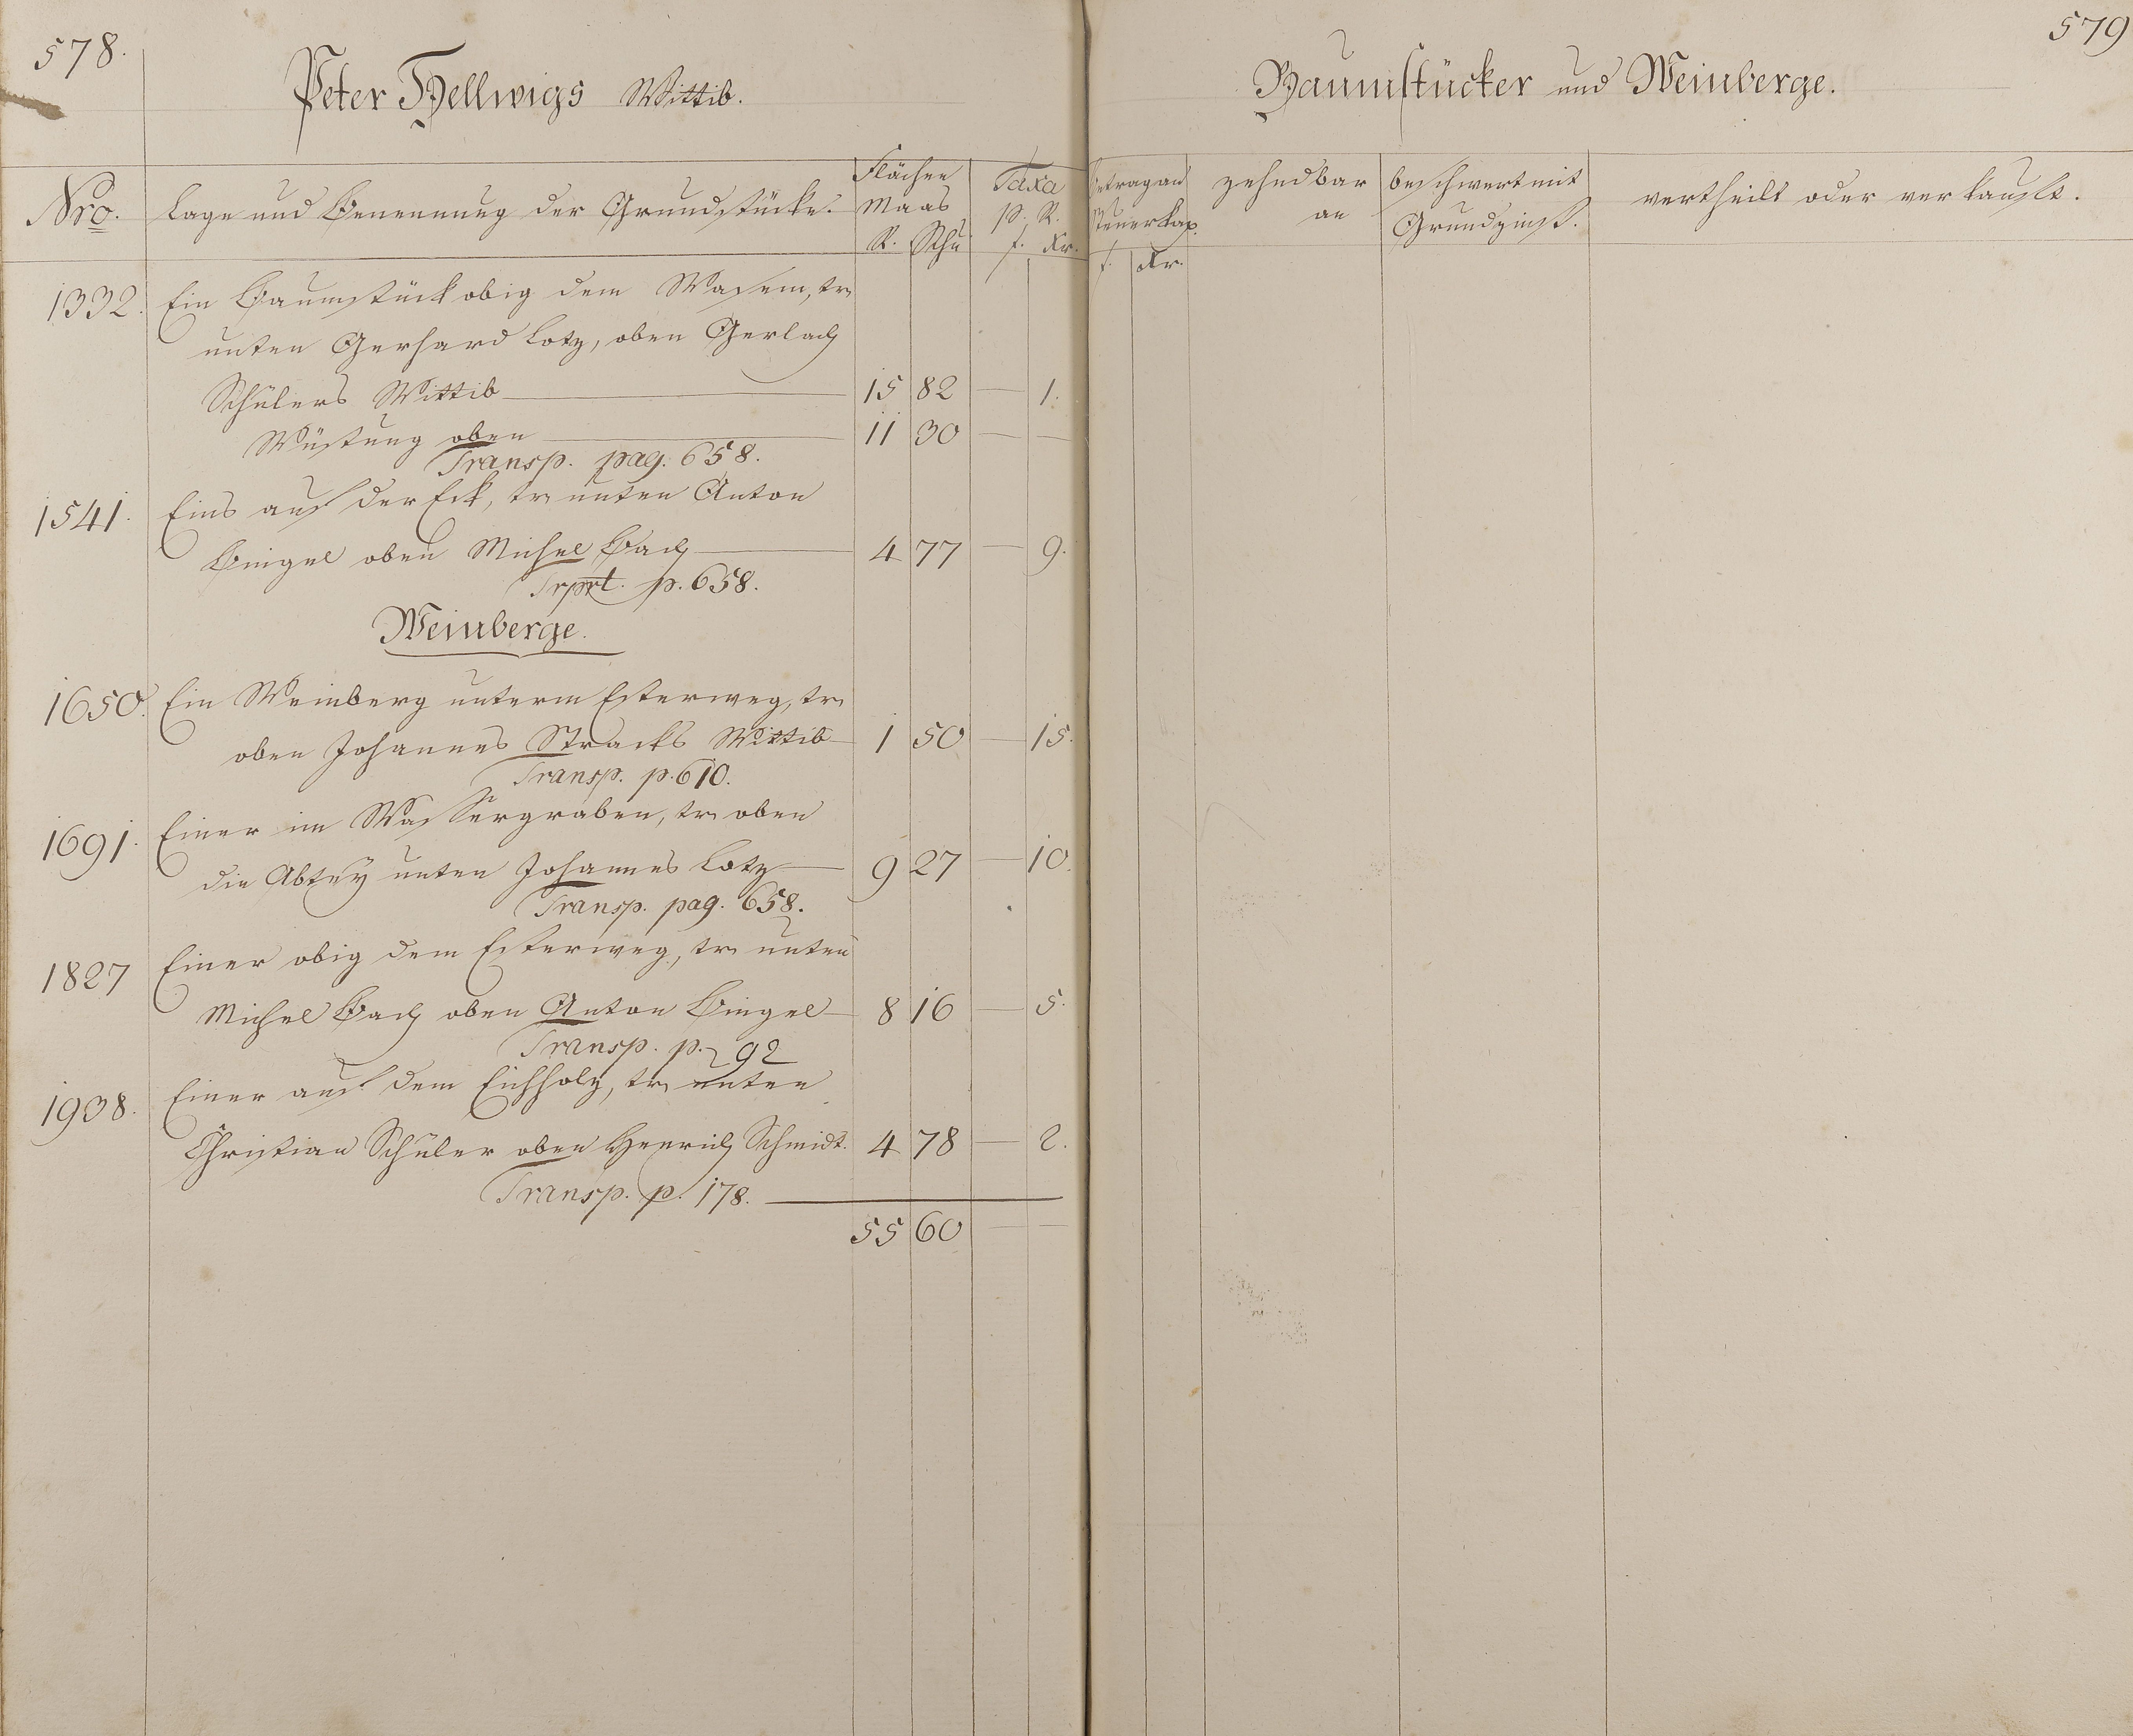 578.
Peter Hellwigs Wittib.
Nro. Lage und Benennung der Grundstücke. Flächen Maas R. Schu Taxa p. R. f. Kr.
1332. Ein Baumstück obig dem Wasem, tr.
unten Gerhard Lotz, oben Gerlach
Schülers Wittib 15 82 — 1.
Wüstung oben 11 30 — —
Transp. pag. 658.
1541. Eins auf der Eck, tr. unten Anton
Bingel oben Michel Bach 4 77 — 9.
Trprt. p. 658.
Weinberge.
1650. Ein Weinberg unterm Esterweg, tr.
oben Johannes Stracks Wittib 1 50 — 15.
Transp. p. 610.
1691. Einer im Wassergraben, tr. oben
die Abtey unten Johannes Lotz 9 27 — 10.
Transp. pag. 658.
1827 Einer obig dem Esterweg, tr. unten
Michel Bach oben Anton Bingel 8 16 — 5.
Transp. p. 92
1938. Einer auf dem Eichholz, tr. unten
Christian Schüler oben Henrich Schmidt. 4 78 — 2.
Transp. p. 178.
55 60 — —
579
Baumstücker und Weinberge.
Betrag an Steuerkap. f. Kr. zehndbar an beschwert mit Grundzinß. vertheilt oder verkauft.